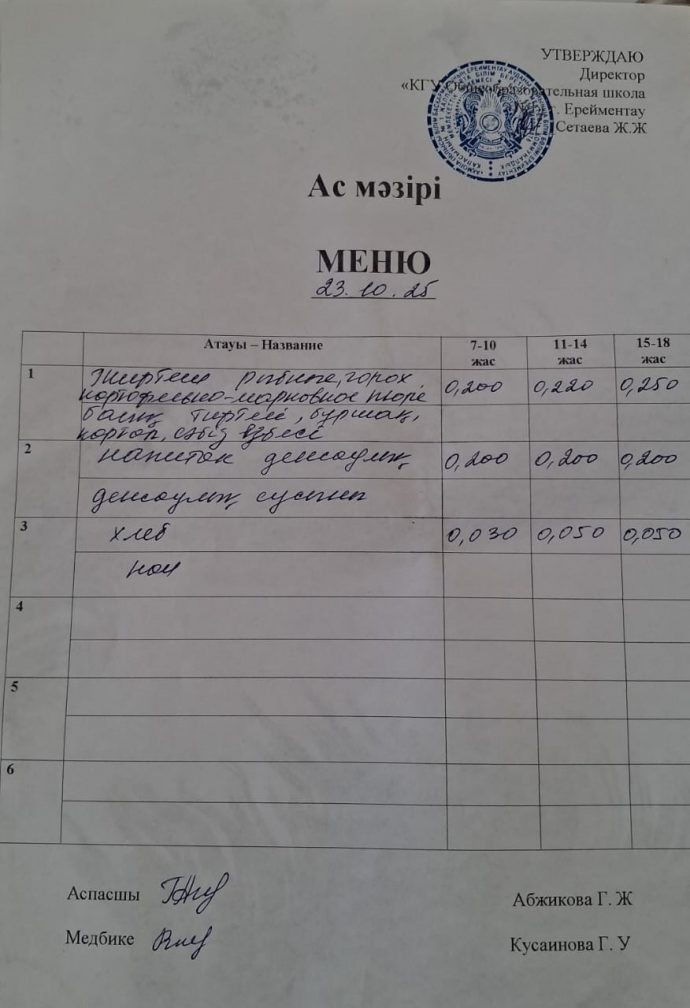 УТВЕРЖДАЮ
Директор
«КГУ Общеобразовательная школа
г. Ерейментау
Сетаева Ж.Ж
Ас мәзірі
МЕНЮ
23.10.25
Атауы – Название 7-10 жас 11-14 жас 15-18 жас
1 рыбные, горох 0,200 0,220 0,250
картофельно-марковное пюре
балық тиртелі, бұршақ,
картоп, сәбіз езбесі
2 напиток денсаулық 0,200 0,200 0,200
денсаулық сусыны
3 хлеб 0,030 0,050 0,050
нан
4
5
6
Аспасшы Абжикова Г. Ж
Медбике Кусаинова Г. У